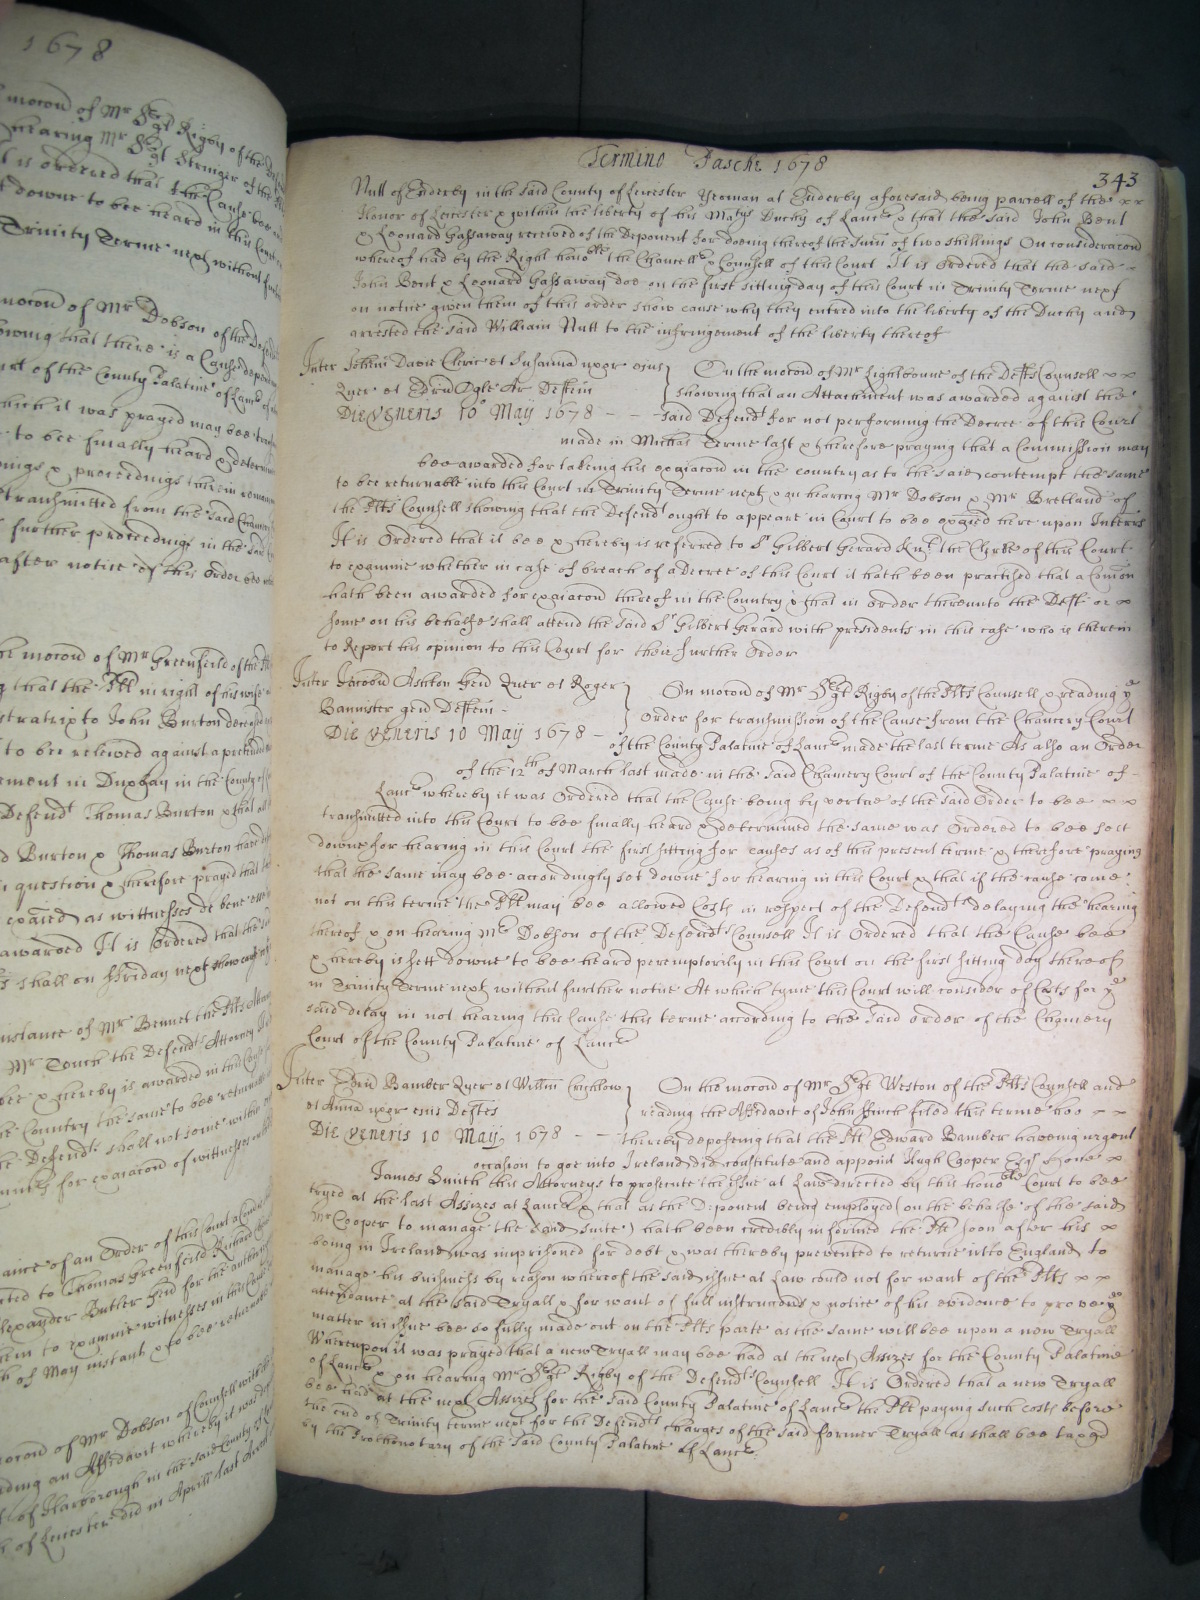 1678
mocon of Mr Sgt Rigby of the
hearing Mr Sgt Stringer of the
is ordered that the Cause bee
downe to bee heard in this Court
Trinity Terme next without
mocon of Mr Dobson of the Defend
showing that there is a Cause depend
Court of the County Palatine of Lanc
which it was prayed may bee
to bee finally heard & determ
& proceedings therein remain
transmitted from the said
further proceedings in the said
after notice of this Order bee
the mocon of Mr Greenfeild of the
that the Pll in right of his wife
Administratrix to John Burton deceased
to bee releived against a pretended
in Duxbury in the County of
Defendt Thomas Burton & that
Burton & Thomas Burton have
question & therefore prayed that
exaied as wittnesses de bene esse
awarded It is Ordered that the
shall on ffriday next show cause
instance of Mr Bennet the Plts Attorn
Mr Touch the Defendts Attorney
bee & hereby is awarded in this Cause
the Country the same to bee returnable
the Defendt shall not some within
for exaiacon of wittnesses
ance of an Order of this Court
to Thomas Greenfeild Richard
Alexander Butler gen for the
them to examine witnesses in this
of May instant & to bee return
mocon of Mr Dobson of Counsell with
reading an Affidavit whereby it was
of Harborough in the said County of
of Leicester did in Aprill last
Termino Pasche 1678
343
Nutt of Enderby in the said County of Leicester Yeoman at Enderby aforesaid being parcell of the x x
Honor of Leicester & within the liberty of his Matys Duchy of Lanc & that the said John Bent
& Leonard Gassaway received of the Deponent for doeing thereof the sum of two shillings On consideracon
whereof had by the Right honoble the Chancellr & Counsell of this Court It is ordered that the said
John Bent & Leonard Gassaway doe on the first sitting day of this Court in Trinity Terme next
on notice given them of this order show cause why they entred into the liberty of the Duchy and
arrested the said William Nutt to the infringement of the liberty thereof
Inter Davie Cleric et Susanna uxor eius
Quer et Edru Ogle Ar Deffem
Die Veneris 10o May 1678 - - -
On the mocon of Mr Lightboune of the Deffts Counsell x x
showing that an Attachment was awarded against the
said Defendt for not performing the Decree of this Court
made in Michas Terme last & therefore praying that a Commission may
bee awarded for taking his exaiacon in the country as to the said contempt the same
to bee returnable into this Court in Trinity Terme next & on hearing Mr Dobson & Mr Bretland of
the Plts Counsell showing that the Defendt ought to appeare in Court to bee exaied here upon Interrs
It is Ordered that it bee & hereby is referred to Sr Gilbert Gerard Knt the Clerke of this Court
to examine whether in case of breach of a Decree of this Court it hath been practised that a Comon
hath been awarded for exaiacon thereof in the Country & that in order thereunto the Defft or x
some on his behalfe shall attend the said Sr Gilbert Gerard with presidents in this case who is therein
to Report his opinion to this Court for their further Order
Inter Jacobu Ashton gen Quer et Roger
Bannister gen Deffem -
Die Veneris 10 May 1678 -
On mocon of Mr Sgt Rigby of the Plts Counsell & reading ye
Order for transmission of the Cause from the Chancery Court
of the County Palatine of Lanc made the last terme As also an Order
of the 12th of March last made in the said Chancery Court of the County Palatine of -
Lanc whereby it was Ordered that the Cause being by vertue of the said Order to bee x x
transmitted into this Court to bee finally heard & determined the same was Ordered to bee sett
downe for hearing in this Court the first sitting for causes as of this present terme & therefore praying
that the same may bee accordingly set downe for hearing in this Court & that if the cause come
not on this terme the Plt may bee allowed Costs in respect of the Defendts delaying the hearing
thereof & on hearing Mr Dobson of the Defendts Counsell It is Ordered that the Cause bee
& hereby is sett downe to bee heard peremptorily in this Court on the first sitting day thereof
in Trinity Terme next without further notice At which tyme this Court will consider of Costs for ye
said delay in not hearing this Cause this terme according to the said order of the Chancery
Court of the County Palatine of Lanc
Inter Edru Bamber Quer et Willm Crichlow
et Anna uxor eius Deftes
Die Veneris 10 May 1678 - -
On the mocon of Mr Sgt Weston of the Plts Counsell and
reading the Affidavit of John ffinch filed this terme hee - -
thereby deposeing that the Plt Edward Bamber haveing urgent
occasion to goe into Ireland did constitute and appoint Hugh Cooper Esqr & one x
James Smith his Attorneys to prosecute the issue at Law directed by this honoble Court to bee
tryed at the last Assizes at Lancr & that as the Deponent being employed on the behalfe of the said
Mr Cooper to manage the said suite) hath been credibly informed the Plt soon after his x
being in Ireland was imprisoned for debt & was thereby prevented to returne into England to
manage his businesse by reason whereof the said issue at Law could not for want of the Plts x x
attendance at the said Tryall & for want of full instruccons & notice of his evidence to prove ye
matter in issue bee so fully made out on the Plts parte as the same will bee upon a new Tryall
Whereupon it was prayed that a new Tryall may bee had at the next Assizes for the County Palatine
of Lancr & on hearing Mr Sgt Rigby of the Defendts Counsell It is Ordered that a new Tryall
bee had at the next Assizes for the said County Palatine of Lancr the Plt paying such costs before
the end of Trinity terme next for the Defendts charges of the said former Tryall as shall bee taxed
by the Prothonotary of the said County Palatine of Lancr